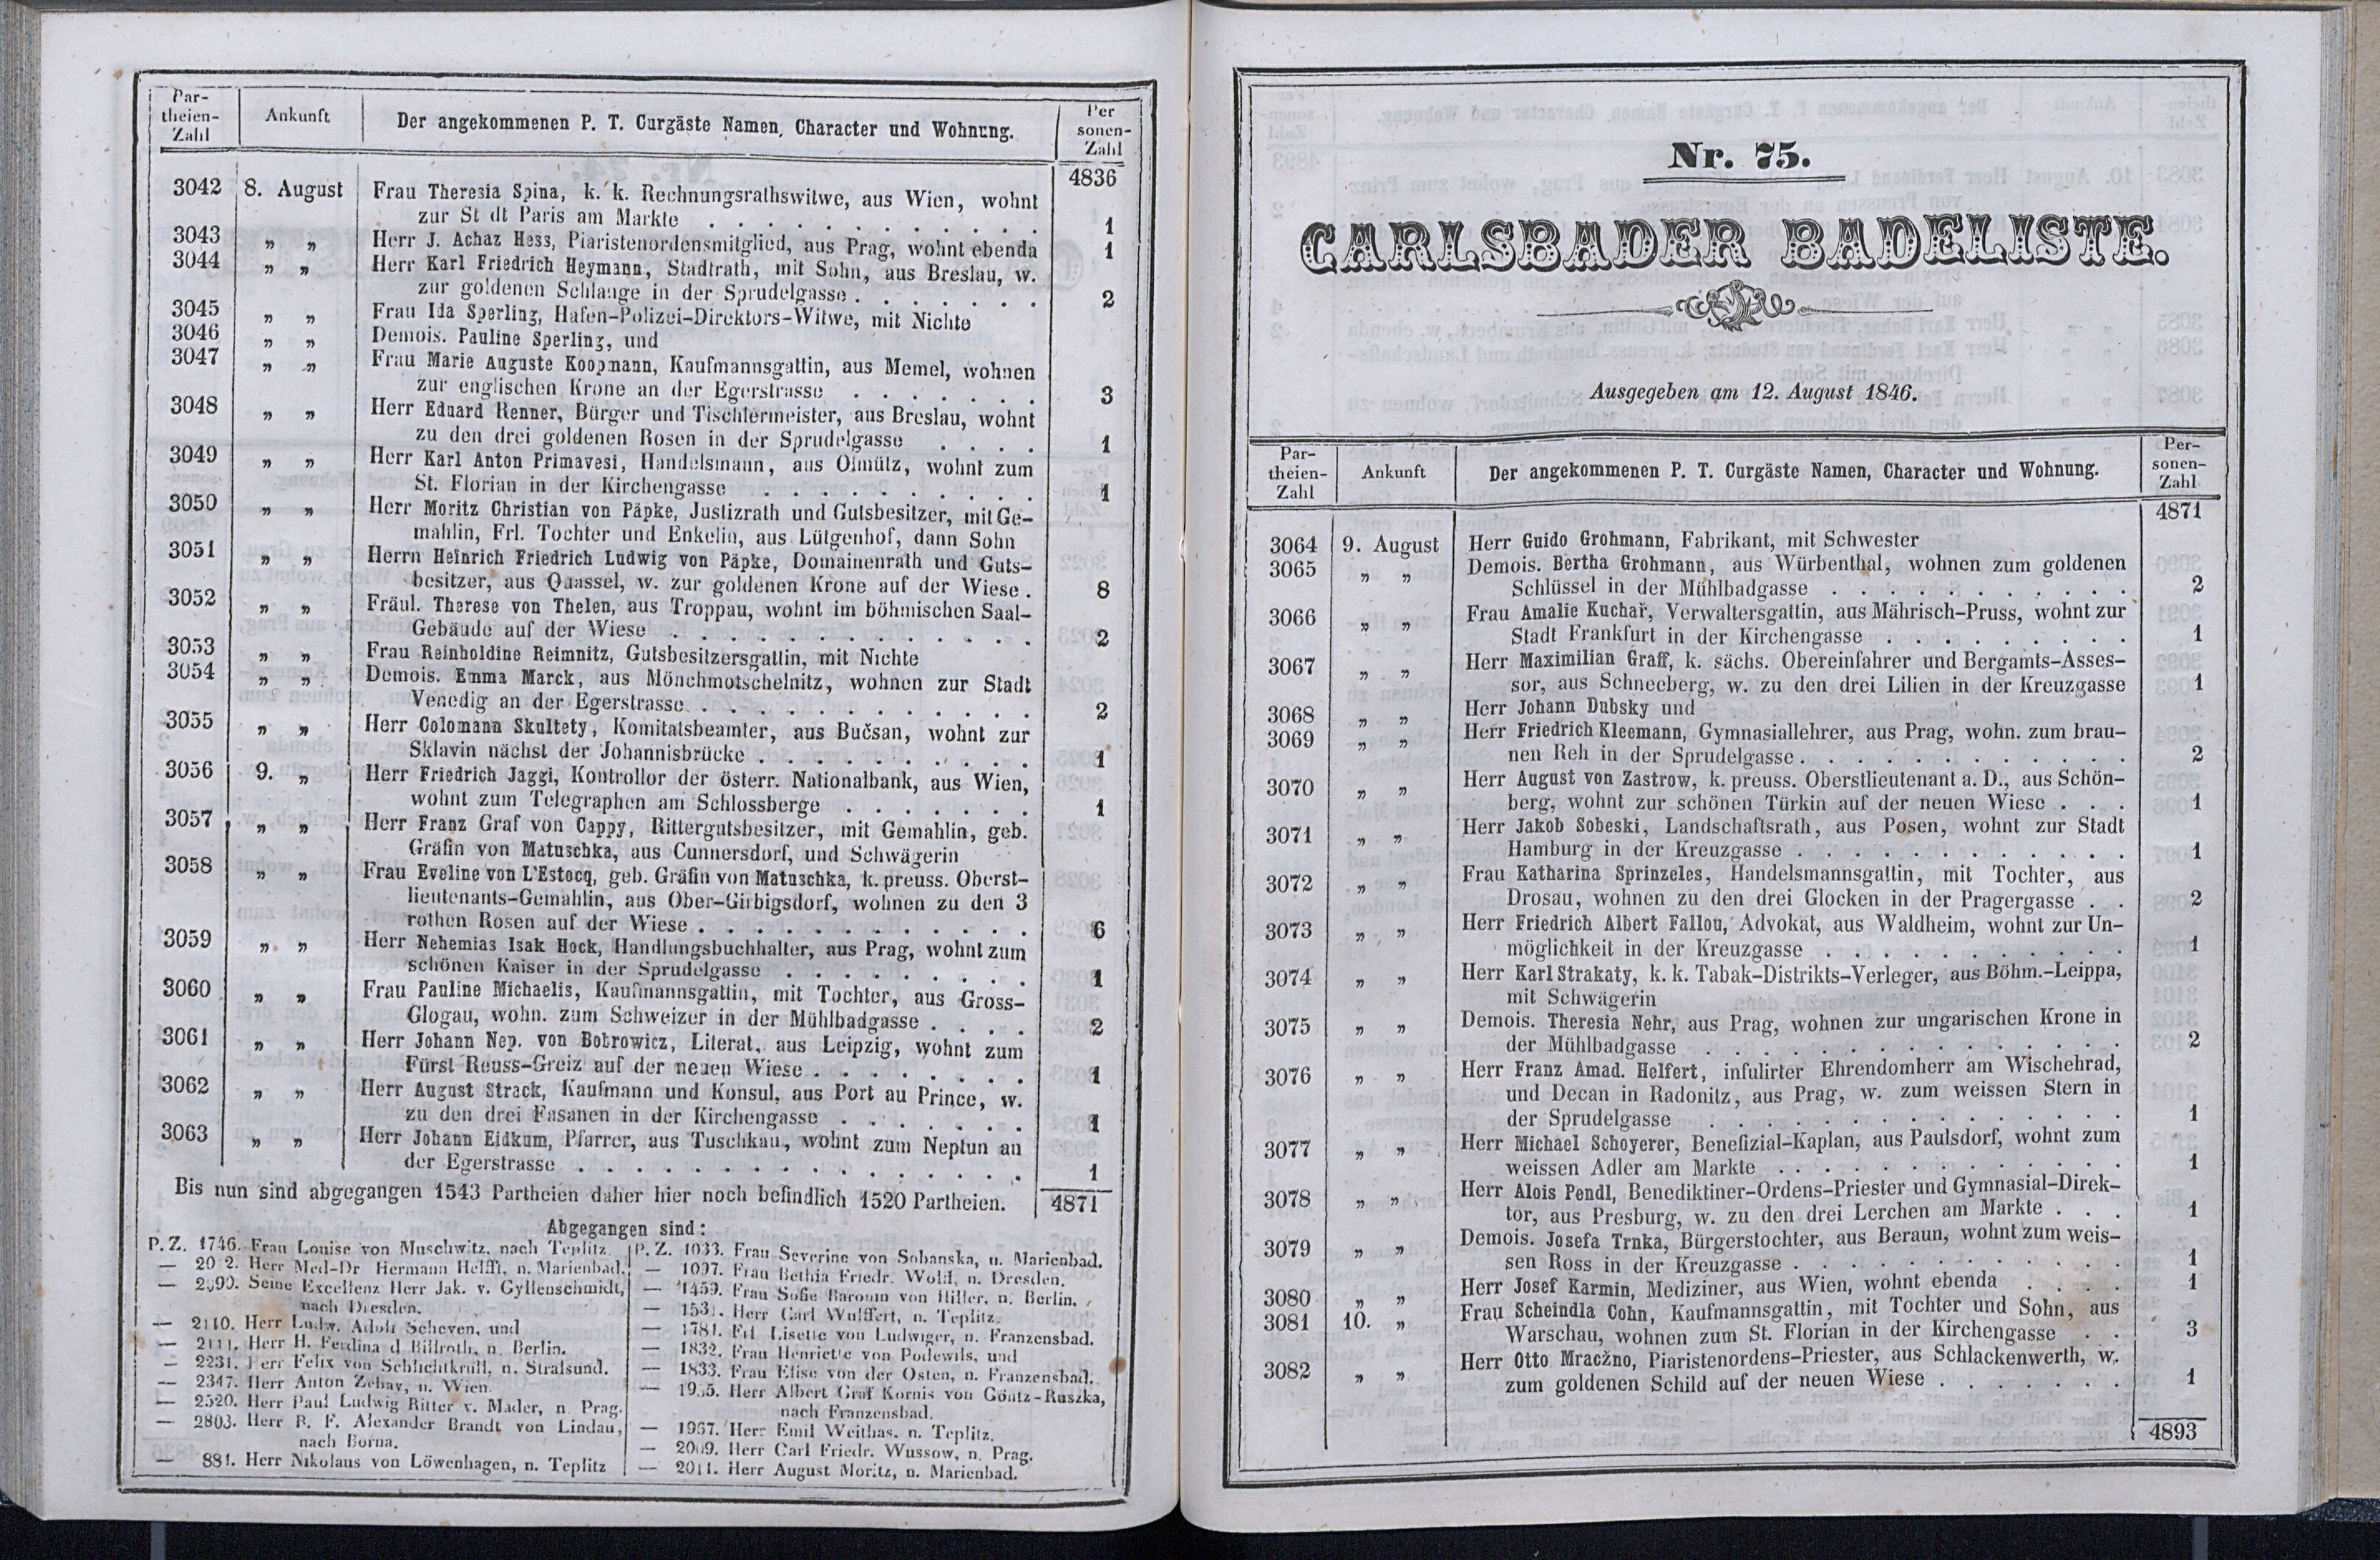 Par-
theien-
Zahl
Ankunft
Der angekommenen P. T. Curgäste Namen, Character und Wohnung.
Per
sonen-
Zahl
4836
3042 8. August Frau Theresia Spina, k. k. Rechnungsrathswitwe, aus Wien, wohnt
zur St dt Paris am Markte . . . . . . . . . . . . 1
3043 „ „ Herr J. Achaz Hess, Piaristenordensmitglied, aus Prag, wohnt ebenda 1
3044 „ „ Herr Karl Friedrich Heymann, Stadtrath, mit Sohn, aus Breslau, w.
zur goldenen Schlange in der Sprudelgasse . . . . . . . 2
3045 „ „ Frau Ida Sperling, Hafen-Polizei-Direktors-Witwe, mit Nichte
3046 „ „ Demois. Pauline Sperling, und
3047 „ „ Frau Marie Auguste Koopmann, Kaufmannsgattin, aus Memel, wohnen
zur englischen Krone an der Egerstrasse . . . . . . . 3
3048 „ „ Herr Eduard Renner, Bürger und Tischlermeister, aus Breslau, wohnt
zu den drei goldenen Rosen in der Sprudelgasse . . . . 1
3049 „ „ Herr Karl Anton Primavesi, Handelsmann, aus Olmütz, wohnt zum
St. Florian in der Kirchengasse . . . . . . . . . . 1
3050 „ „ Herr Moritz Christian von Päpke, Justizrath und Gutsbesitzer, mit Ge-
mahlin, Frl. Tochter und Enkelin, aus Lütgenhof, dann Sohn
3051 „ „ Herrn Heinrich Friedrich Ludwig von Päpke, Domainenrath und Guts-
besitzer, aus Quassel, w. zur goldenen Krone auf der Wiese . 8
3052 „ „ Fräul. Therese von Thelen, aus Troppau, wohnt im böhmischen Saal-
Gebäude auf der Wiese . . . . . . . . . . . . . 2
3053 „ „ Frau Reinholdine Reimnitz, Gutsbesitzersgattin, mit Nichte
3054 „ „ Demois. Emma Marck, aus Mönchmotschelnitz, wohnen zur Stadt
Venedig an der Egerstrasse . . . . . . . . . . . . 2
3055 „ „ Herr Colomann Skultety, Komitatsbeamter, aus Bučsan, wohnt zur
Sklavin nächst der Johannisbrücke . . . . . . . . . . 1
3056 9. „ Herr Friedrich Jaggi, Kontrollor der österr. Nationalbank, aus Wien,
wohnt zum Telegraphen am Schlossberge . . . . . . . 1
3057 „ „ Herr Franz Graf von Cappy, Rittergutsbesitzer, mit Gemahlin, geb.
Gräfin von Matuschka, aus Cunnersdorf, und Schwägerin
3058 „ „ Frau Eveline von L'Estocq, geb. Gräfin von Matuschka, k. preuss. Oberst-
lieutenants-Gemahlin, aus Ober-Girbigsdorf, wohnen zu den 3
rothen Rosen auf der Wiese . . . . . . . . . . . . 6
3059 „ „ Herr Nehemias Isak Hock, Handlungsbuchhalter, aus Prag, wohnt zum
schönen Kaiser in der Sprudelgasse . . . . . . . . . 1
3060 „ „ Frau Pauline Michaelis, Kaufmannsgattin, mit Tochter, aus Gross-
Glogau, wohn. zum Schweizer in der Mühlbadgasse . . . . 2
3061 „ „ Herr Johann Nep. von Bobrowicz, Literat, aus Leipzig, wohnt zum
Fürst Reuss-Greiz auf der neuen Wiese . . . . . . . . 1
3062 „ „ Herr August Strack, Kaufmann und Konsul, aus Port au Prince, w.
zu den drei Fasanen in der Kirchengasse . . . . . . . 1
3063 „ „ Herr Johann Eidkum, Pfarrer, aus Tuschkau, wohnt zum Neptun an
der Egerstrasse . . . . . . . . . . . . . . . . 1
Bis nun sind abgegangen 1543 Partheien daher hier noch befindlich 1520 Partheien. 4871
Abgegangen sind:
P. Z. 1746. Frau Louise von Muschwitz, nach Teplitz.
— 20 2. Herr Med-Dr Hermann Helfft, n. Marienbad.
— 2090. Seine Excellenz Herr Jak. v. Gyllenschmidt,
nach Dresden.
— 2110. Herr Ludw. Adolf Scheven, und
— 2111. Herr H. Ferdina d Billroth, n. Berlin.
— 2231. Herr Felix von Schlichtkrull, n. Stralsund.
— 2347. Herr Anton Zebay, n. Wien.
— 2520. Herr Paul Ludwig Ritter v. Mader, n. Prag.
— 2803. Herr R. F. Alexander Brandt von Lindau,
nach Borna.
— 881. Herr Nikolaus von Löwenhagen, n. Teplitz
P. Z. 1033. Frau Severine von Sobanska, n. Marienbad.
— 1097. Frau Bethia Friedr. Wold, n. Dresden.
— 1459. Frau Sofie Baronin von Hiller, n. Berlin.
— 153 . Herr Carl Wulffert, n. Teplitz.
— 1781. Frl. Lisette von Ludwiger, n. Franzensbad.
— 1832. Frau Henriette von Podewils, und
— 1833. Frau Elise von der Osten, n. Franzensbad.
— 19 5. Herr Albert Graf Kornis von Göntz-Ruszka,
nach Franzensbad.
— 1967. Herr Emil Weithas, n. Teplitz.
— 2009. Herr Carl Friedr. Wussow, n. Prag.
— 2011. Herr August Moritz, n. Marienbad.
Nr. 75.
CARLSBADER BADELISTE.
Ausgegeben am 12. August 1846.
Par-
theien-
Zahl
Ankunft
Der angekommenen P. T. Curgäste Namen, Character und Wohnung.
Per-
sonen-
Zahl
4871
3064 9. August Herr Guido Grohmann, Fabrikant, mit Schwester
3065 „ „ Demois. Bertha Grohmann, aus Würbenthal, wohnen zum goldenen
Schlüssel in der Mühlbadgasse . . . . . . . . . . . 2
3066 „ „ Frau Amalie Kuchař, Verwaltersgattin, aus Mährisch-Pruss, wohnt zur
Stadt Frankfurt in der Kirchengasse . . . . . . . . . 1
3067 „ „ Herr Maximilian Graff, k. sächs. Obereinfahrer und Bergamts-Asses-
sor, aus Schneeberg, w. zu den drei Lilien in der Kreuzgasse 1
3068 „ „ Herr Johann Dubsky und
3069 „ „ Herr Friedrich Kleemann, Gymnasiallehrer, aus Prag, wohn. zum brau-
nen Reh in der Sprudelgasse . . . . . . . . . . . . 2
3070 „ „ Herr August von Zastrow, k. preuss. Oberstlieutenant a. D., aus Schön-
berg, wohnt zur schönen Türkin auf der neuen Wiese . . . 1
3071 „ „ Herr Jakob Sobeski, Landschaftsrath, aus Posen, wohnt zur Stadt
Hamburg in der Kreuzgasse . . . . . . . . . . . . 1
3072 „ „ Frau Katharina Sprinzeles, Handelsmannsgattin, mit Tochter, aus
Drosau, wohnen zu den drei Glocken in der Pragergasse . . 2
3073 „ „ Herr Friedrich Albert Fallou, Advokat, aus Waldheim, wohnt zur Un-
möglichkeit in der Kreuzgasse . . . . . . . . . . . 1
3074 „ „ Herr Karl Strakaty, k. k. Tabak-Distrikts-Verleger, aus Böhm.-Leippa,
mit Schwägerin
3075 „ „ Demois. Theresia Nehr, aus Prag, wohnen zur ungarischen Krone in
der Mühlbadgasse . . . . . . . . . . . . . . . 2
3076 „ „ Herr Franz Amad. Helfert, infulirter Ehrendomherr am Wischehrad,
und Decan in Radonitz, aus Prag, w. zum weissen Stern in
der Sprudelgasse . . . . . . . . . . . . . . . 1
3077 „ „ Herr Michael Schoyerer, Benefizial-Kaplan, aus Paulsdorf, wohnt zum
weissen Adler am Markte . . . . . . . . . . . . . 1
3078 „ „ Herr Alois Pendl, Benediktiner-Ordens-Priester und Gymnasial-Direk-
tor, aus Presburg, w. zu den drei Lerchen am Markte . . . 1
3079 „ „ Demois. Josefa Trnka, Bürgerstochter, aus Beraun, wohnt zum weis-
sen Ross in der Kreuzgasse . . . . . . . . . . . . 1
3080 „ „ Herr Josef Karmin, Mediziner, aus Wien, wohnt ebenda . . . . 1
3081 10. „ Frau Scheindla Cohn, Kaufmannsgattin, mit Tochter und Sohn, aus
Warschau, wohnen zum St. Florian in der Kirchengasse . . 3
3082 „ „ Herr Otto Mračžno, Piaristenordens-Priester, aus Schlackenwerth, w.
zum goldenen Schild auf der neuen Wiese . . . . . . . 1
4893